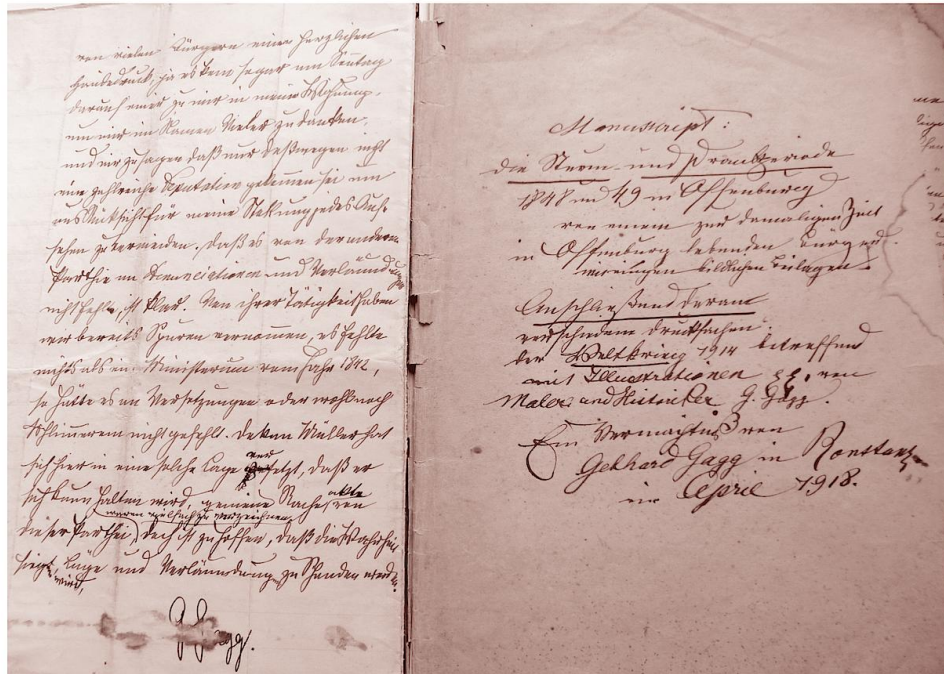 von vielen Bürgern einen herzlichen
Händedruck, ja es kam sogar am Sonntag
darauf einer zu mir in meine Wohnung,
um mir im Namen Vieler zu danken,
und mir zu sagen daß nur deßwegen nicht
eine zahlreiche Deputation gekommen sei um
aus Rücksicht für meine Stellung jedes Auf-
sehen zu vermeiden. Daß es von der andern
Parthie an Denunciationen und Verläumdungen
nicht fehlte, ist klar. Von ihrer Tätigkeit haben
wir bereits Spuren vernommen, es fehlte
nichts als ein Ministerium vom Jahr 1842,
so hätte es an Versetzungen oder wohl noch
Schlimmerem nicht gefehlt. Dekan Müller hat
sich hier in eine solche Lage versetzt, daß er
sich kaum halten wird, gemeine Racheakte von
waren vielfach zu verzeichnen
dieser Parthei, doch ist zu hoffen, daß die Wahrheit
siegt, Lüge und Verläumdung zu Schanden werden
wird,
G. Gagg.
Manuscript:
Die Sturm- und Drankperiode
1848 und 49 in Offenburg
von einem zur damaligen Zeit
in Offenburg lebenden Bürger.
mit einigen bildlichen Beilagen
Anschließend daran
verschiedene Drucksachen.
der Weltkrieg 1914 betreffend
mit Illustrationen pp. von
Maler und Historiker G. Gagg.
Ein Vermächtniß von
Gebhard Gagg in Konstanz
im April 1918.